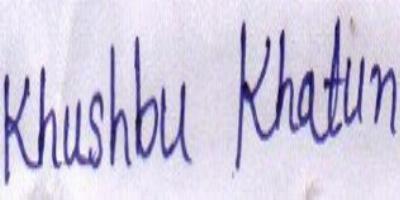 Khushbu Khatun